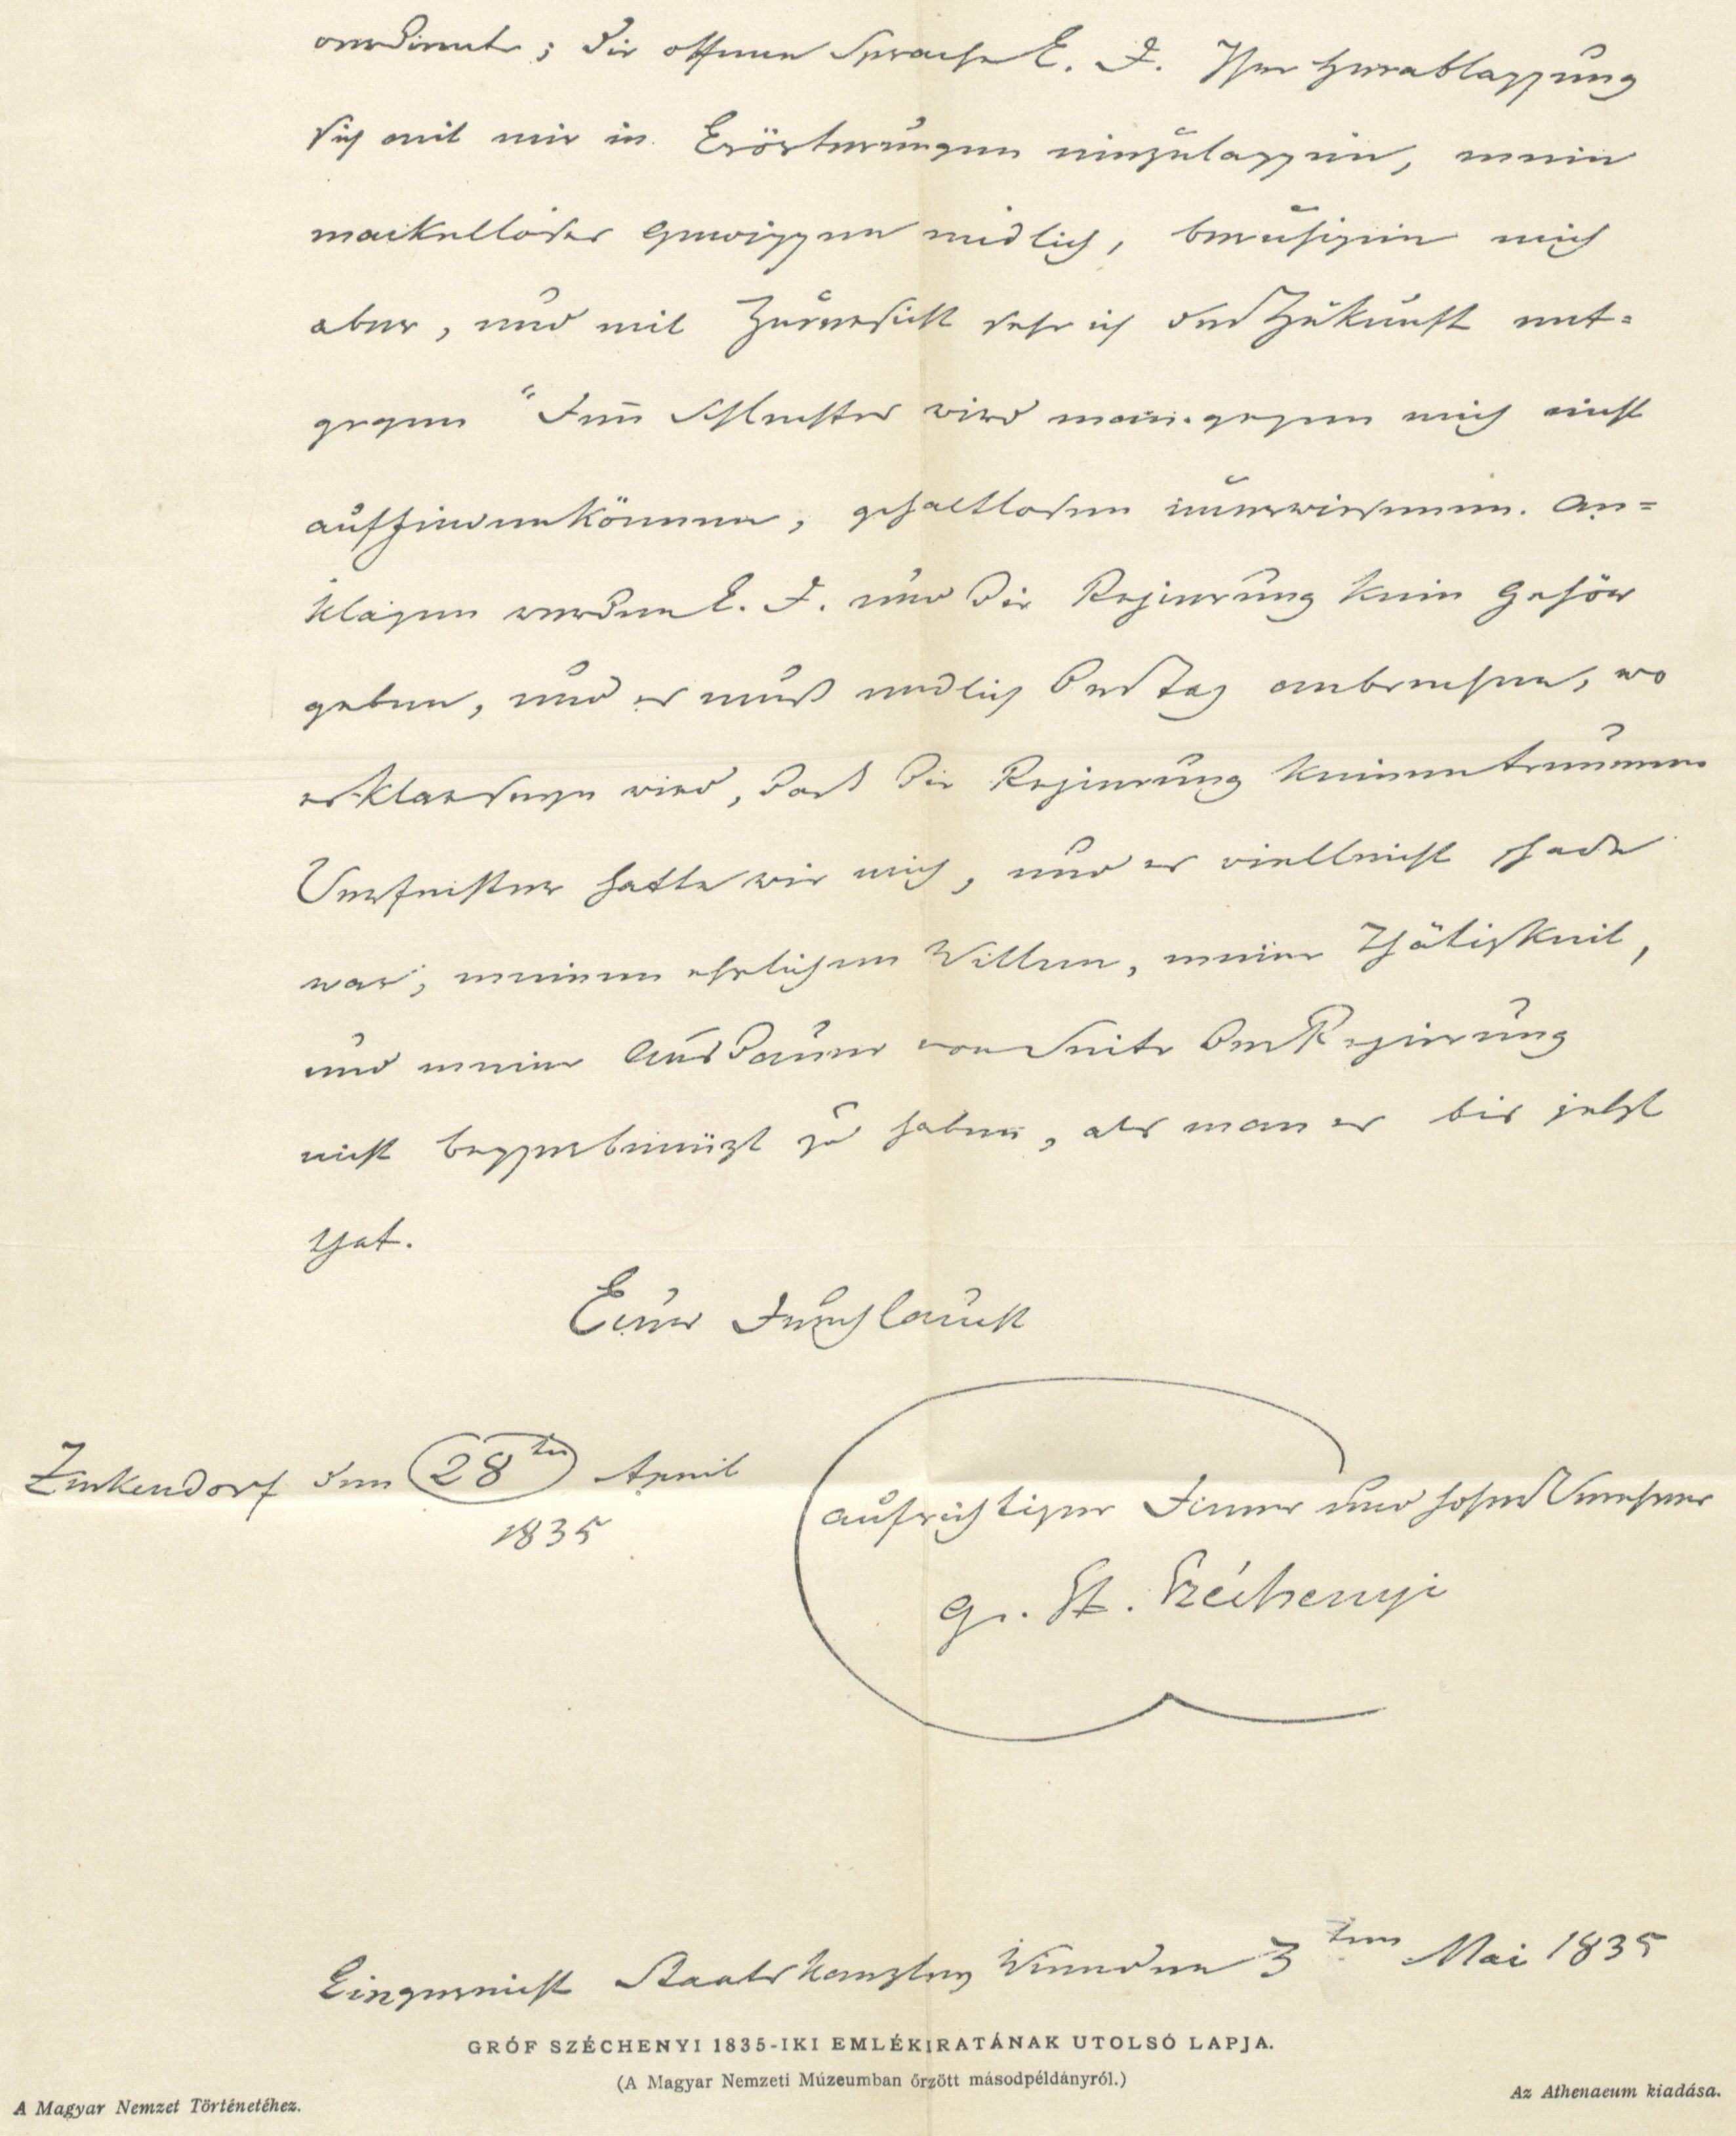 verdiente; die offene Sprache E. D. Ihre Herablassung
sich mit mir in Erörterungen einzulassen, mein
mackelloses Gewissen endlich, beruhigen mich
aber, und mit Zuversicht sehe ich der Zukunft ent=
gegen " Denn Schlechtes wird man gegen mich nicht
auffinden können, gehaltlosen unerwiesenen An=
klagen werden E. D. und die Regierung kein Gehör
geben, und es muß endlich der Tag anbrechen, wo
es klar seyn wird, dass die Regierung keinen treueren
Verfechter hatte wie mich, und es vielleicht schade
war, meinen ehrlichen Willen, meine Thätigkeit,
und meine Ausdauer von Seite der Regierung
nicht besser benüzt zu haben, als man es bis jetzt
that.
Euer Durchlaucht
Zinkendorf den 28ten April
1835
aufrichtiger Diener und hoher Verehrer
Gr. St. Széchenyi
Eingereicht Staatskanzley Wien den 3ten Mai 1835
GRÓF SZÉCHENYI 1835-IKI EMLÉKIRATÁNAK UTOLSÓ LAPJA.
(A Magyar Nemzeti Múzeumban őrzött másodpéldányról.)
A Magyar Nemzet Történetéhez.
Az Athenaeum kiadása.